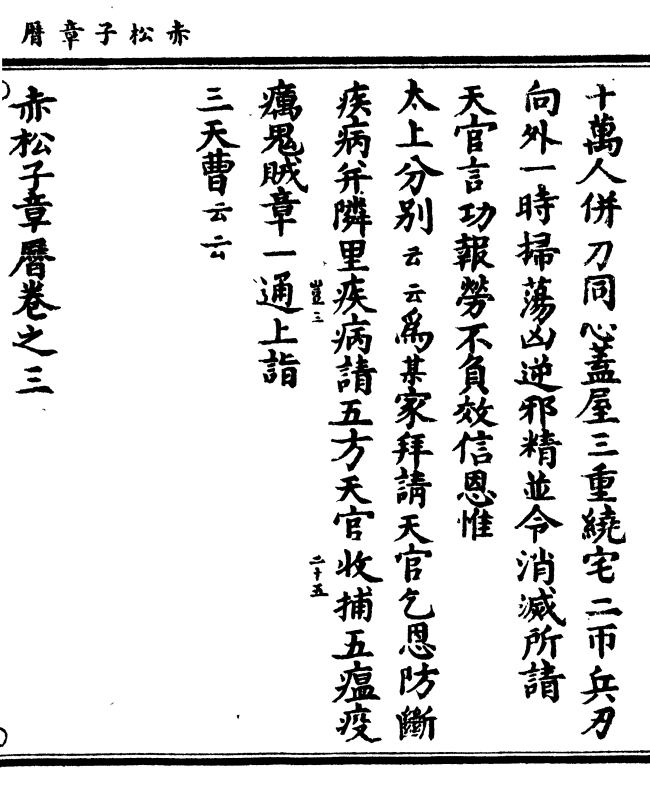 赤松子章曆
十萬人併刀同心蓋屋三重繞宅二帀兵刃
向外一時掃蕩凶逆邪精並令消滅所請
天官言功報勞不負效信恩惟
太上分别云云爲某家拜請天官乞恩防斷
疾病并隣里疾病請五方天官收捕五瘟疫
豈三
二十五
癘鬼賊章一通上詣
三天曹云云
赤松子章曆卷之三